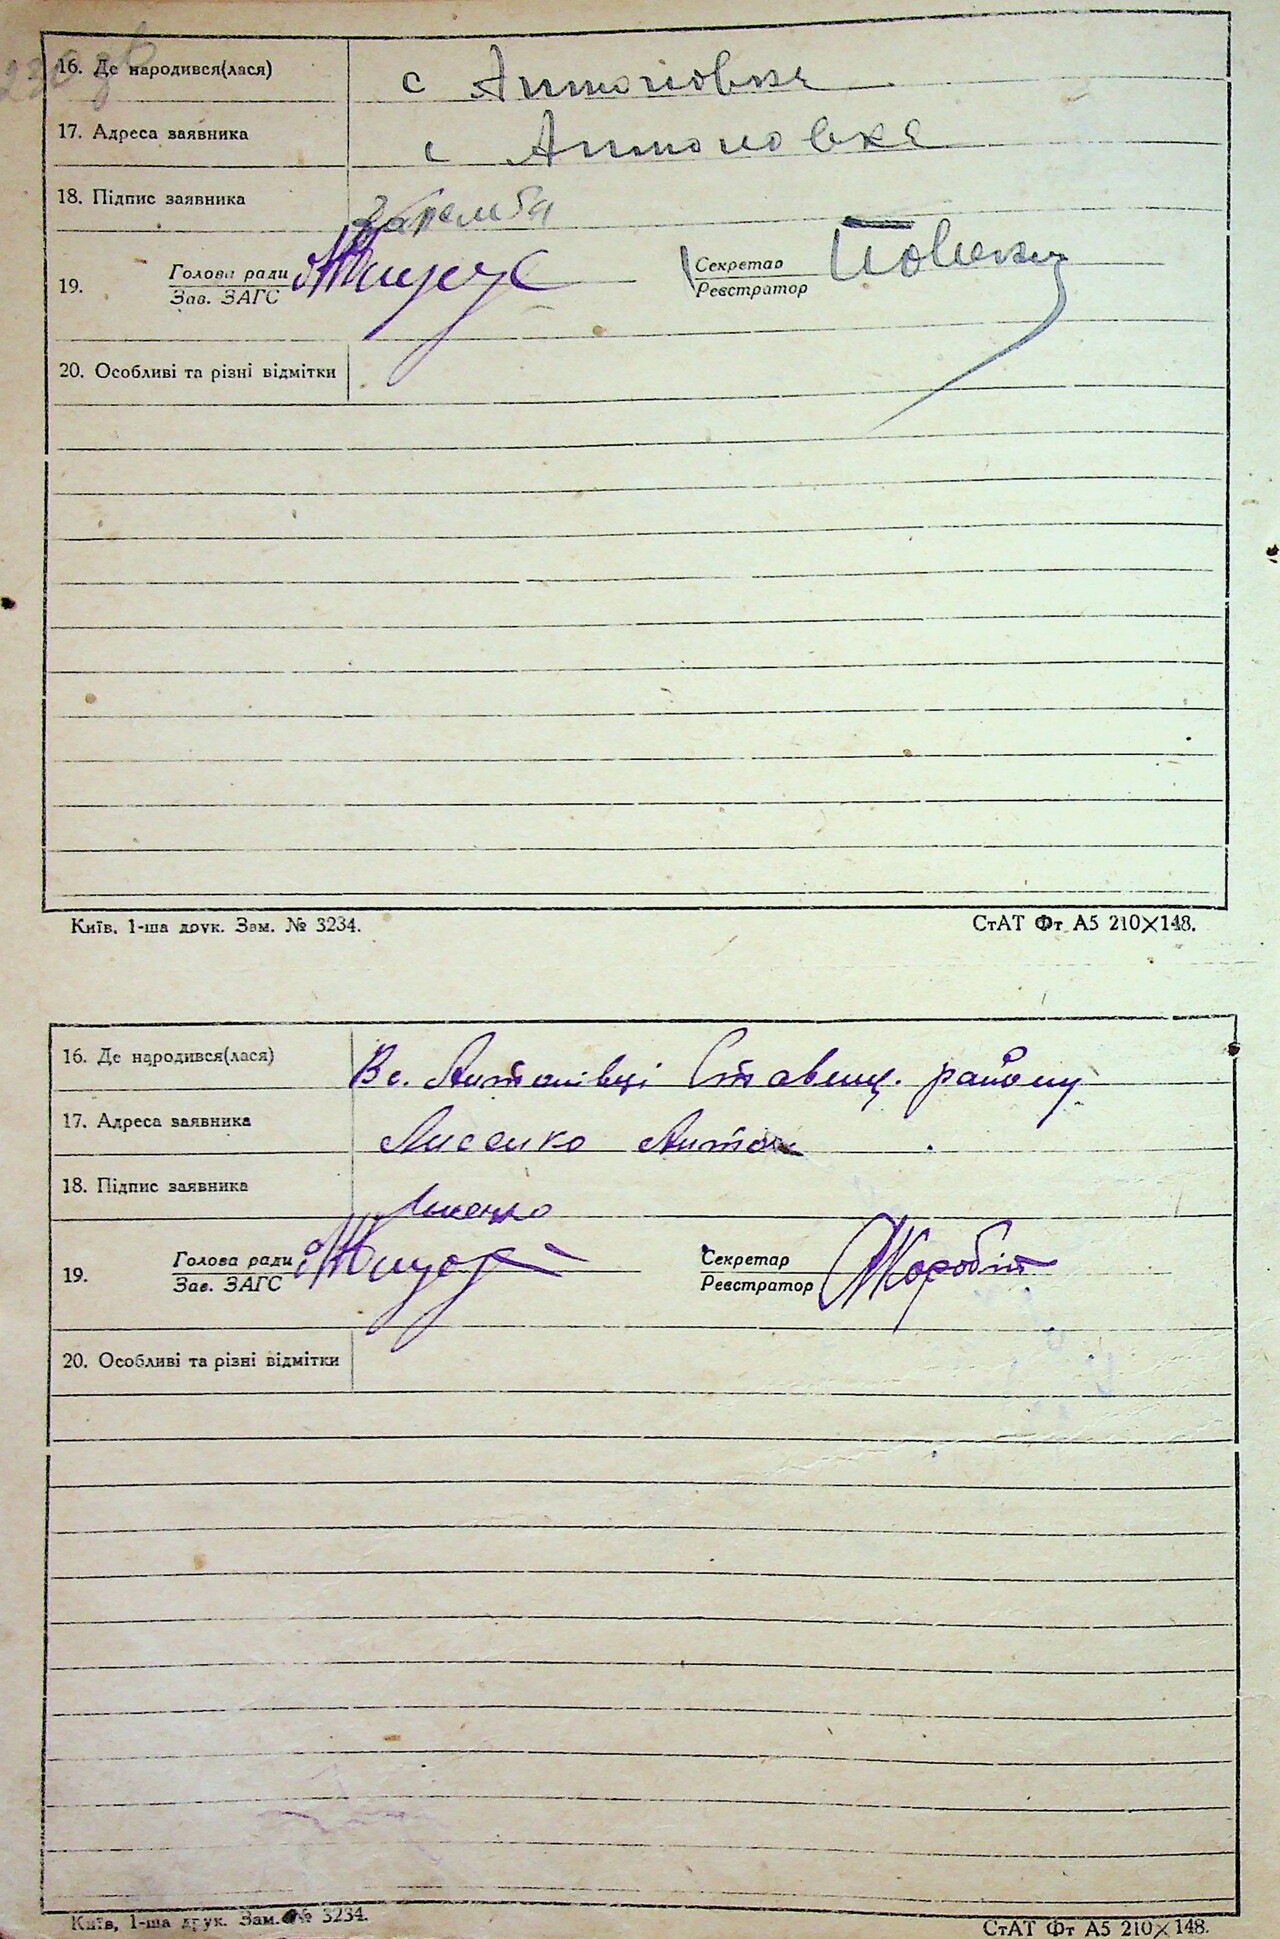 230зв
16. Де народився(лася) с Антоновка
17. Адреса заявника с Антоновка
18. Підпис заявника Заремба
19. Голова ради Секретар
Зав. ЗАГС Реєстратор
20. Особливі та різні відмітки
Київ, 1-ша друк. Зам. № 3234. СтАТ Фт А5 210×148.
16. Де народився(лася) В с. Антонівці Ставищ. району
17. Адреса заявника Лисенко Антон
18. Підпис заявника Лисенко
19. Голова ради Секретар Коробій
Зав. ЗАГС Реєстратор
20. Особливі та різні відмітки
Київ, 1-ша друк. Зам. № 3234. СтАТ Фт А5 210×148.